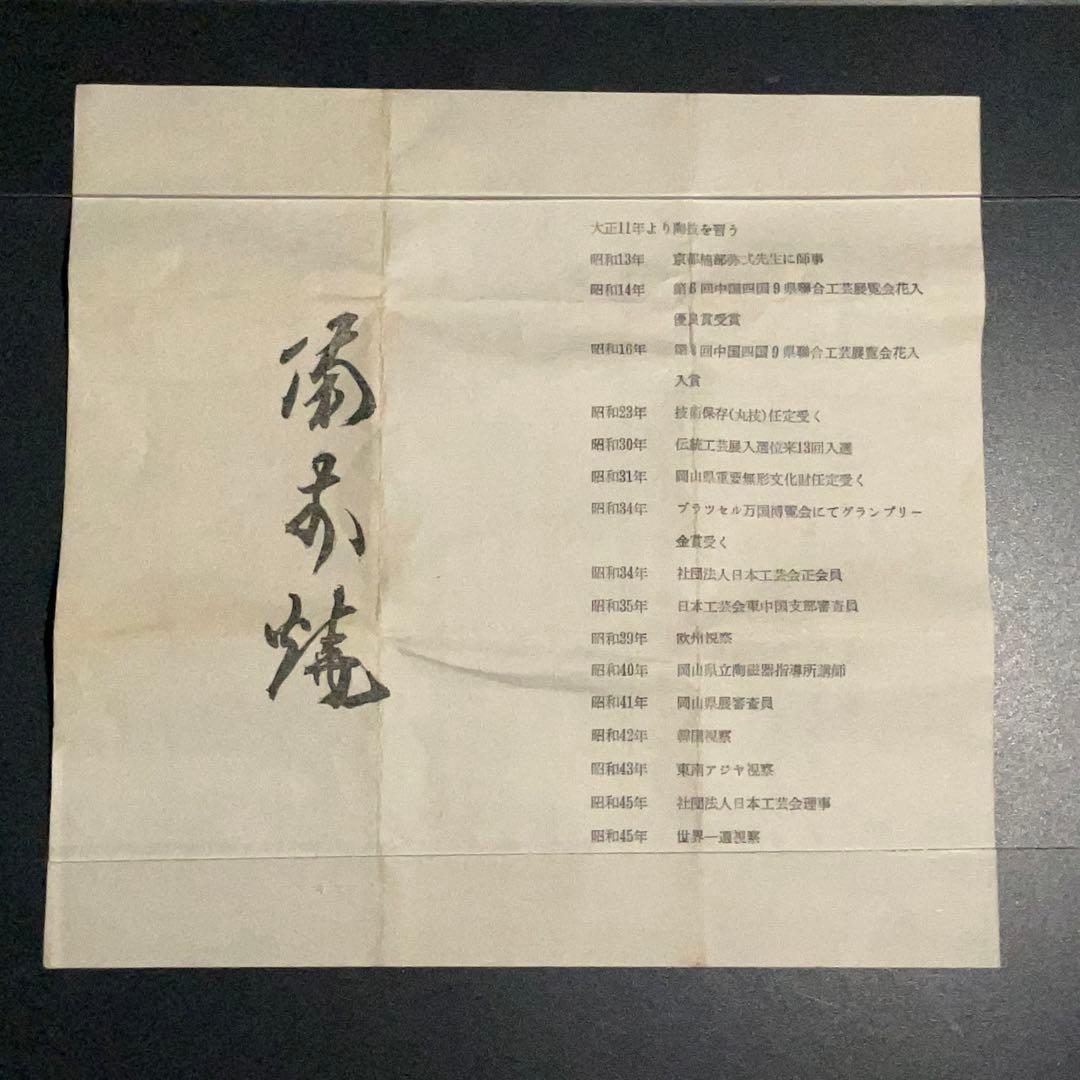 備前焼
大正11年より陶技を習う
昭和13年 京都楠部弥弌先生に師事
昭和14年 第6回中国四国9県聯合工芸展覧会花入
優良賞受賞
昭和16年 第 回中国四国9県聯合工芸展覧会花入
入賞
昭和23年 技術保存(丸技)任定受く
昭和30年 伝統工芸展入選位来13回入選
昭和31年 岡山県重要無形文化財任定受く
昭和34年 ブラツセル万国博覧会にてグランプリー
金賞受く
昭和34年 社団法人日本工芸会正会員
昭和35年 日本工芸会東中国支部審査員
昭和39年 欧州視察
昭和40年 岡山県立陶磁器指導所講師
昭和41年 岡山県展審査員
昭和42年 韓国視察
昭和43年 東南アジヤ視察
昭和45年 社団法人日本工芸会理事
昭和45年 世界一週視察